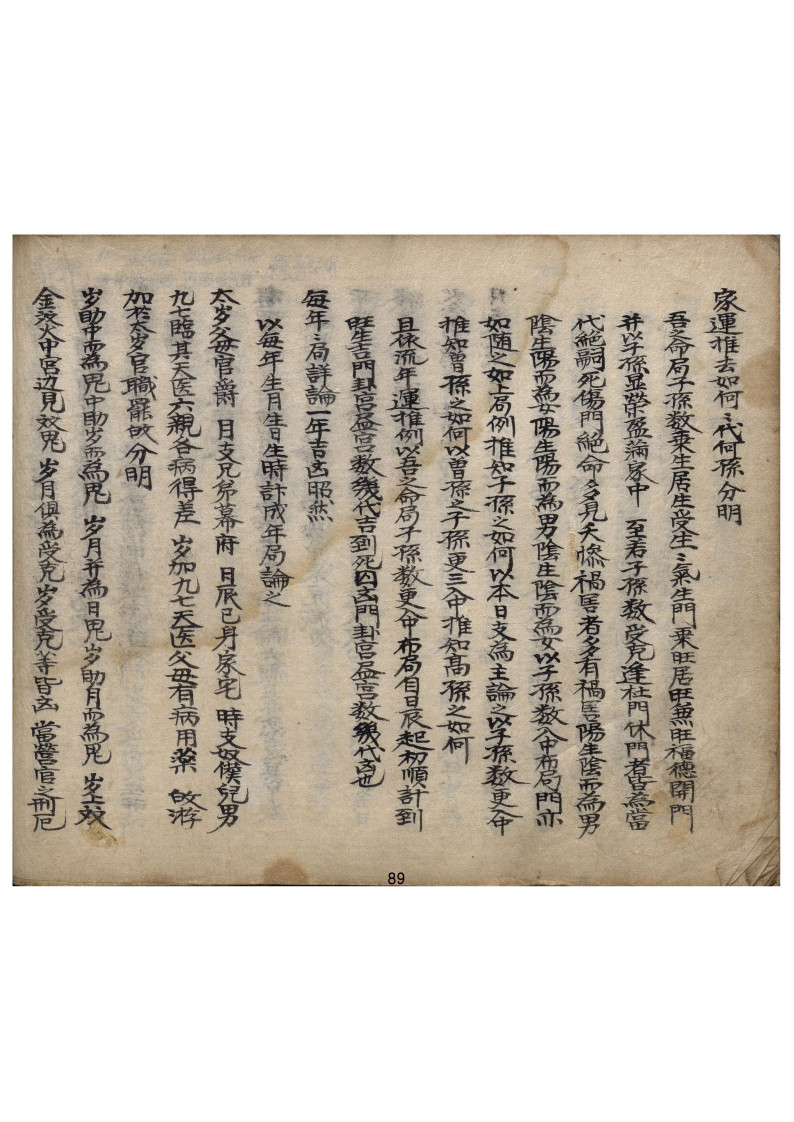 家運推去如何〻代何孫分明
吾之命局子孫数乗生居生受生〻氣生門乗旺居旺兼旺福德開門
并以子孫显榮盈滿家中 至若子孫数受克逢杜門休門者皆為當
代絕嗣死傷門絕命多見夭慘禍害者多有禍害陽生陰而為男
陰生陽而為女陽生陽而為男陰生陰而為女以子孫数入中布局門亦
如随之如上局例推知子孫之如何以本日支為主論之以子孫数更入中
推知曾孫之如何以曾孫之子孫更三入中推知高孫之如何
且依流年運推例以吾之命局子孫数更入中布局自日辰起初順計到
旺生吉門卦宮益宮数幾代吉到死囚凶門卦宮益宮数幾代凶也
每年〻局詳論一年吉凶昭然
以每年生月生日生時計成年局論之
太岁父母官爵 月支兄弟幕府 日辰已身家宅 時支奴僕兒男
九七臨其天医六親各病得差 岁加九七天医父母有病用藥 敀游
加於太岁官職罷敀分明
岁助中而為鬼中助岁而為鬼 岁月并為日鬼岁助月而為鬼 岁上效
金效火中宮辺見效鬼 岁月俱為受克岁受克等皆凶 當營官之刑厄
89